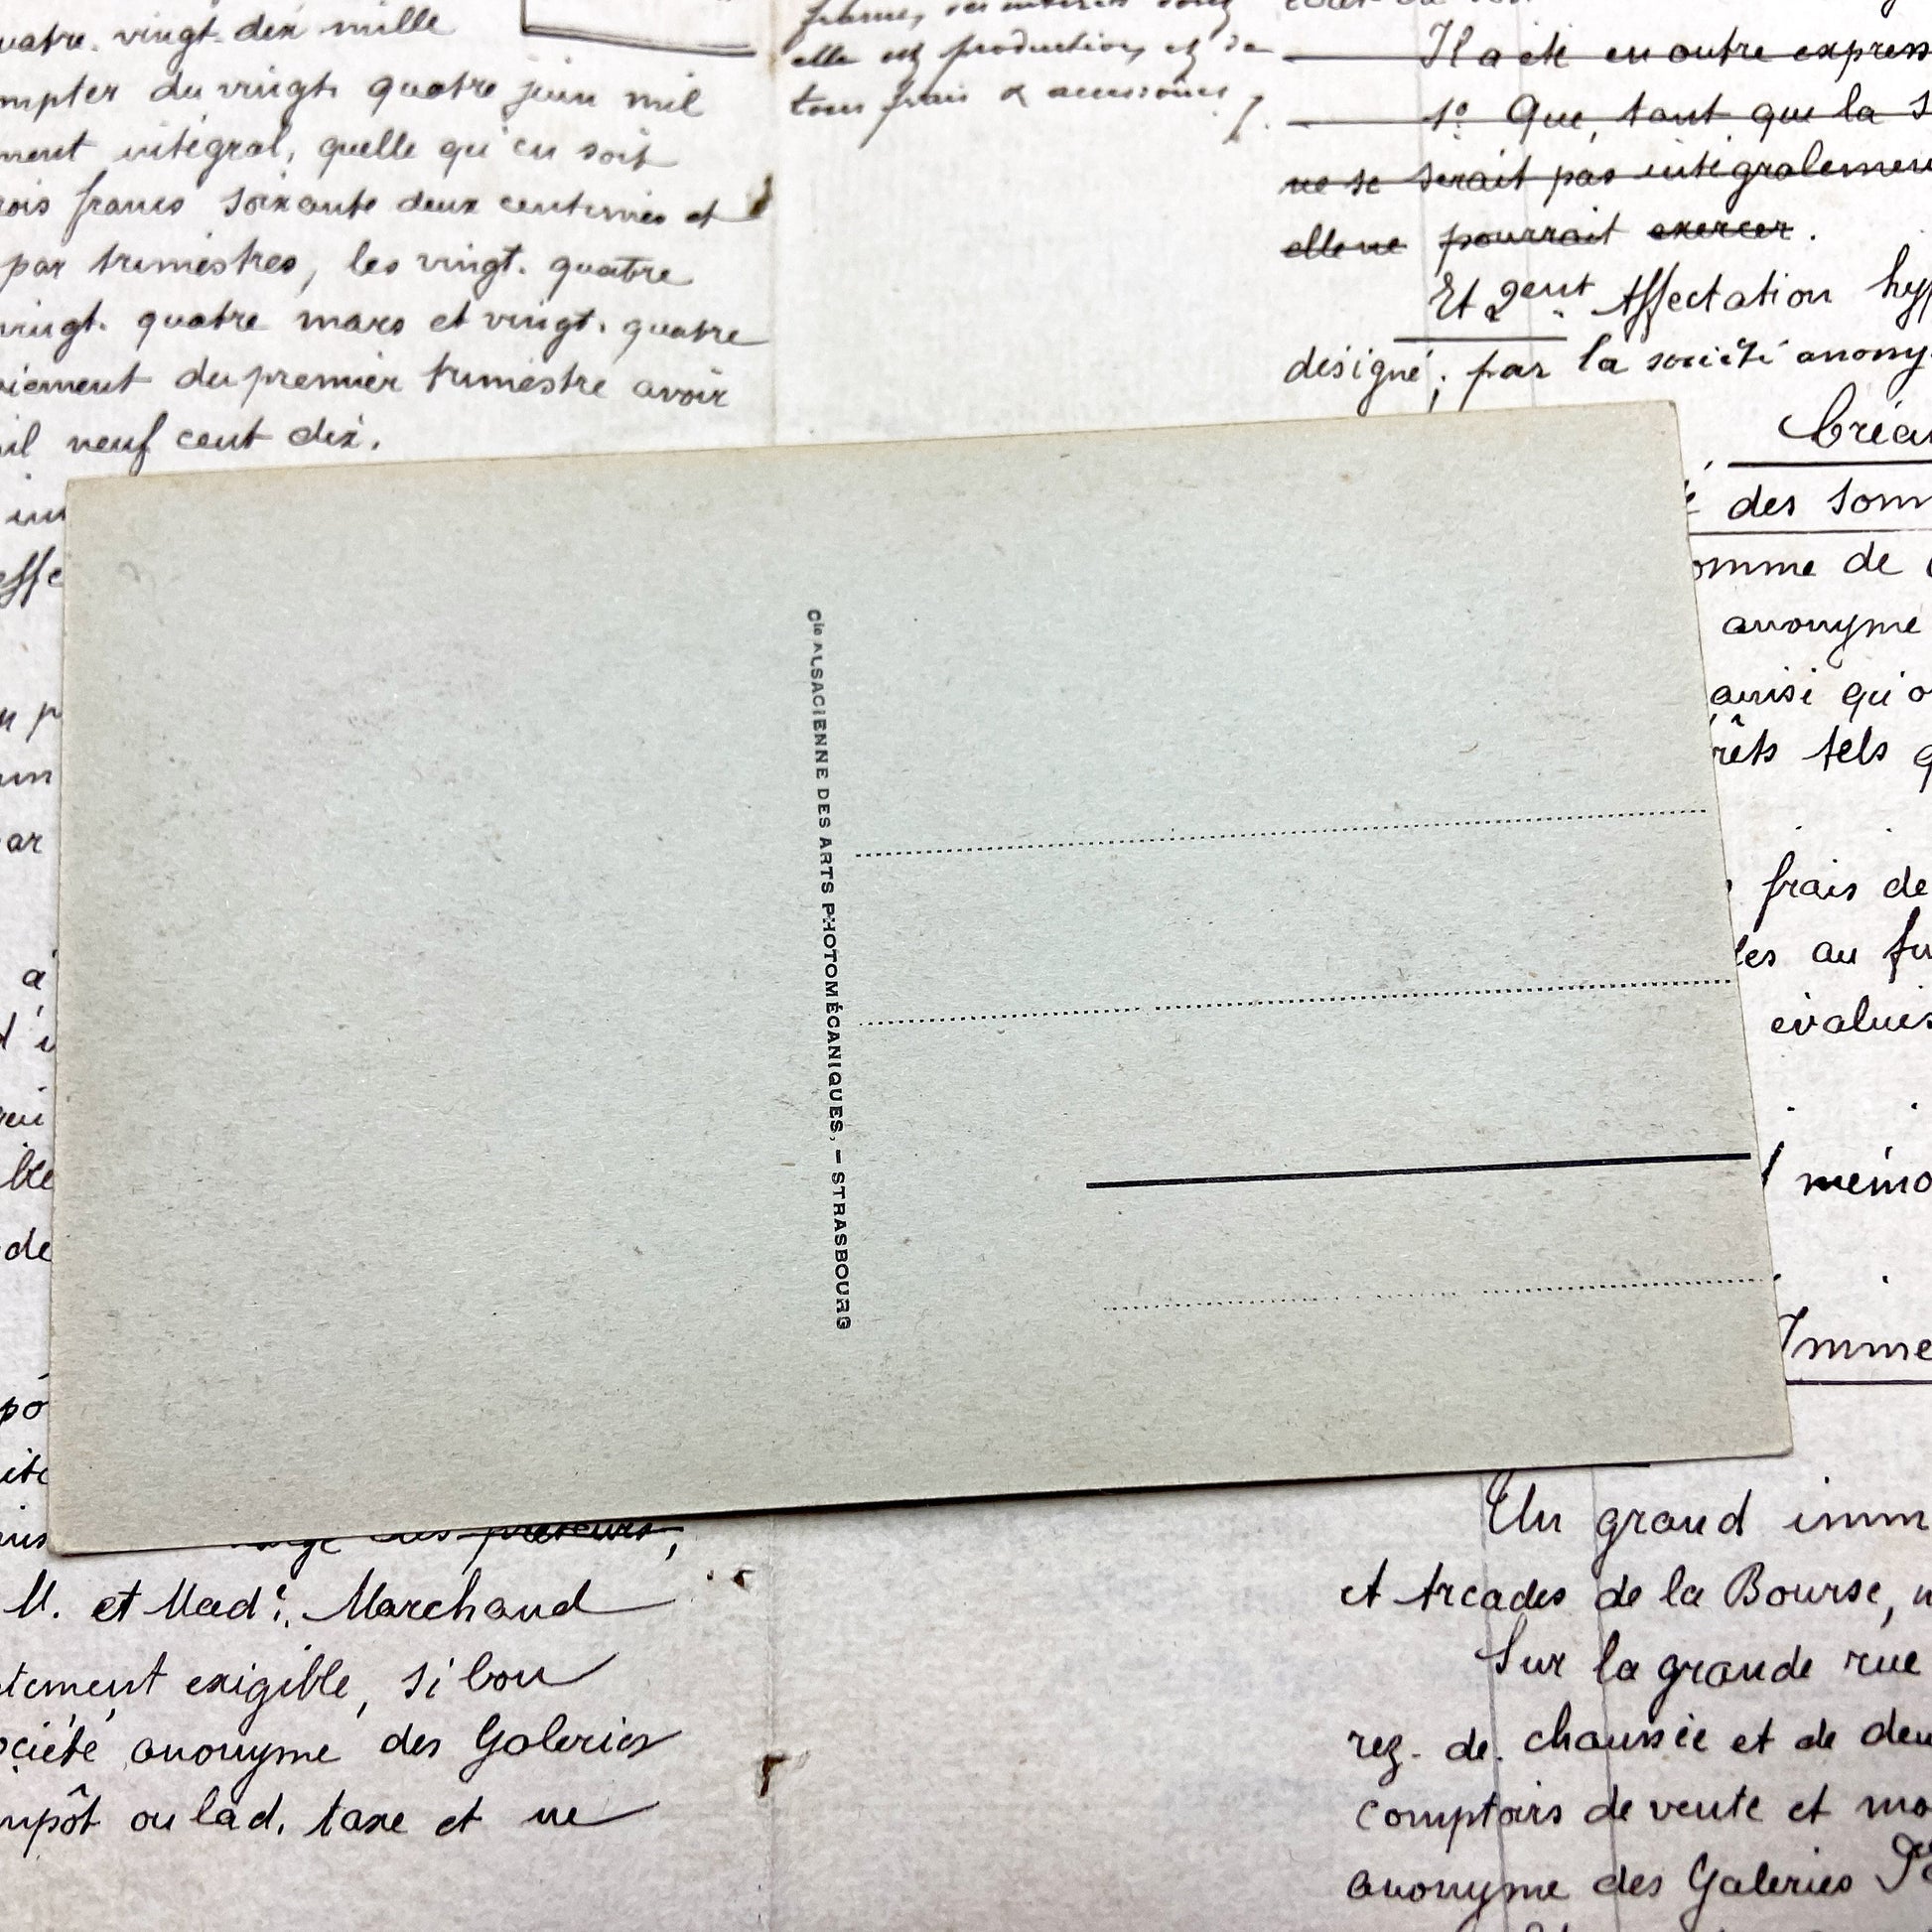 quatre. vingt. dix mille
compter du vingt. quatre juin mil
intégral, quelle qu'en soit
francs soixante deux centimes et
par trimestres, les vingt. quatre
vingt. quatre mars et vingt. quatre
du premier trimestre avoir
neuf cent dix.
elle est production, et de
tous frais & accessoires
Il a été en outre express
1º Que, tant que la S
ne se serait pas intégralement
elle ne pourrait exercer.
Et 2ent Affectation hyp
désigné, par la société anony
Créan
des Som
omme de
anonyme
ainsi qu'o
rêts tels q
frais de
les au fu
évalués
mémo
Imme
Cie ALSACIENNE DES ARTS PHOTOMÉCANIQUES, – STRASBOURG
à
de
preteurs,
M. et Made. Marchand
exigible, si bon
société anonyme des Galeries
impôt ou lad. taxe et ne
Un grand imm
et Arcades de la Bourse,
Sur la grande rue
rez. de. chaussée et de deu
comptoirs de vente et ma
anonyme des Galeries